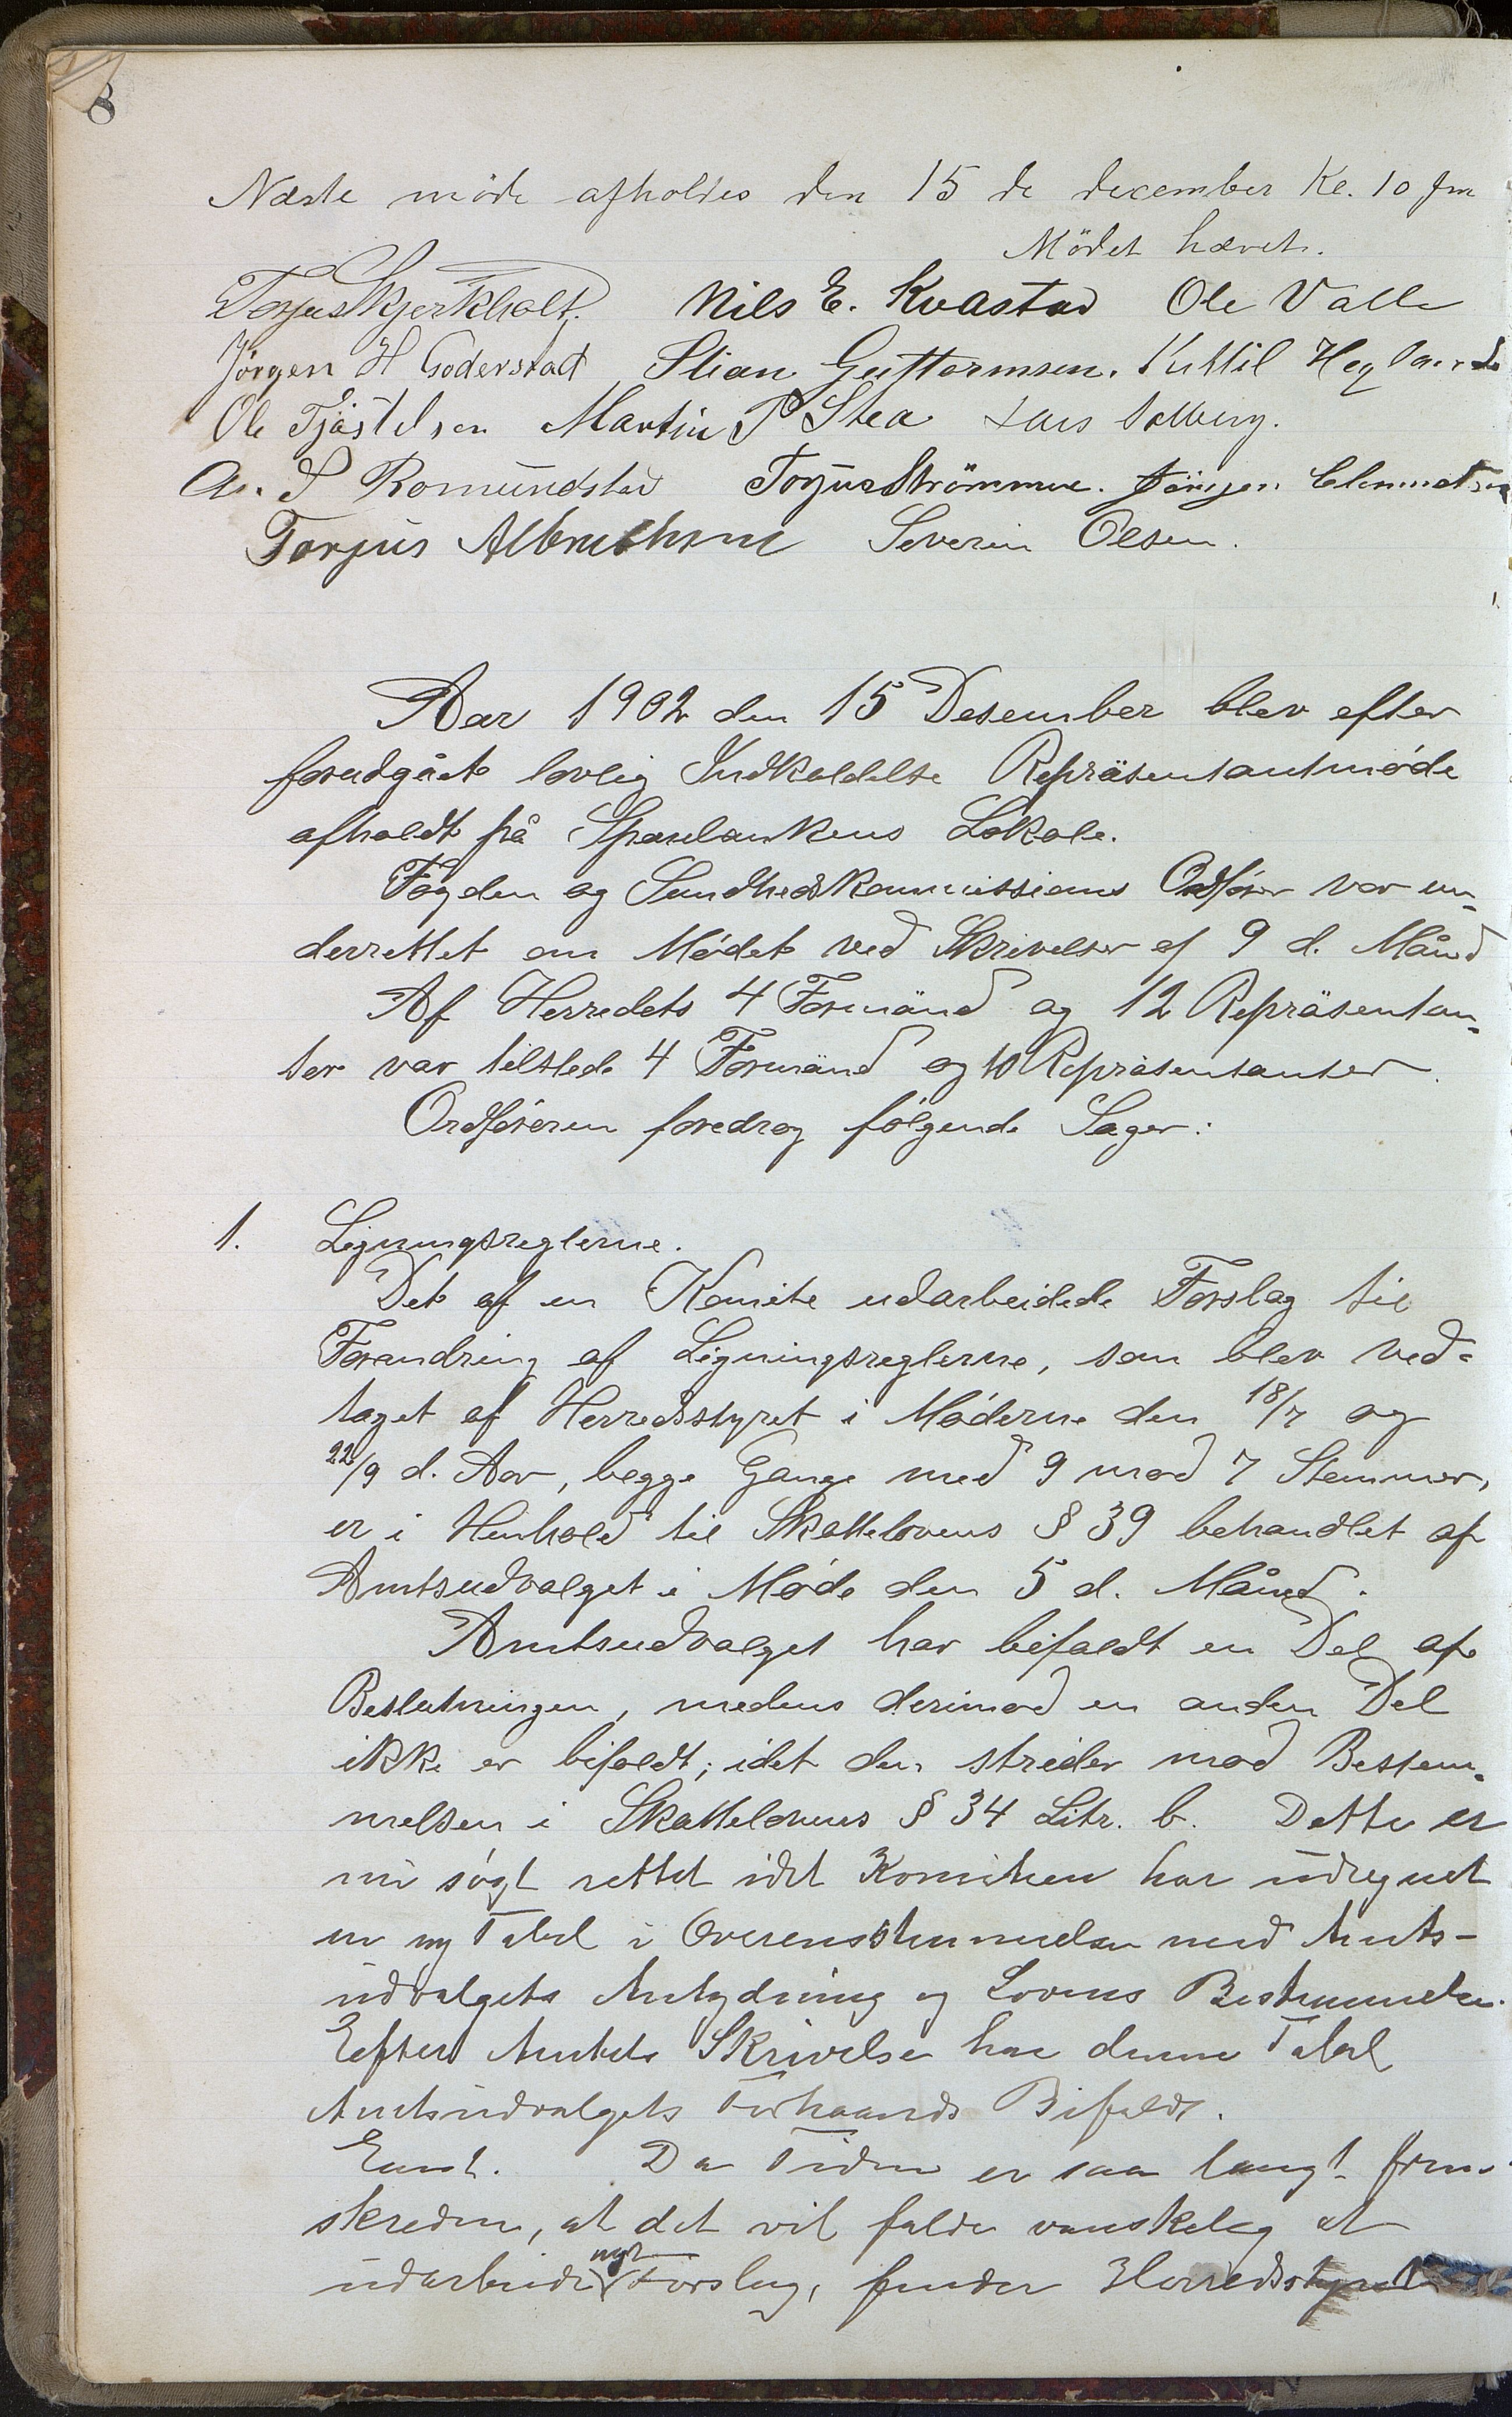 8
Næste möde afholdes den 15 de december Kl. 10 fm
Mödet hævet.
Torjus Skjerkholt. Nils E. Kvastad Ole Valle
Jörgen H Goderstad Stian Guttormsen. Kittil Heglands
Ole Tjöstelsen Martin P Stea Lars Solberg.
As. S Romundstad Torjus Strömme. Jörgen Clemmetsen
Torjus Albrethsen Severin Olsen.
Aar 1902 den 15 Desember blev efter
forudgået lovlig Indkaldelse Repräsentantmøde
afholdt på Sparebankens Lokale.
Fogden og Sundhedskommissions Ordfører var un-
derrettet om Mødet ved Skrivelser af 9 d. Måned
Af Herredets 4 Formänd og 12 Repräsentan-
ter var tilstede 4 Formänd og 10 Repräsentanter.
Ordføreren foredrog følgende Sager:
1. Ligningsreglerne.
Det af en Komite udarbeidede Forslag til
Forandring af Ligningsreglerne, som blev ved-
taget af Herredsstyret i Møderne den 18/7 og
22/9 d. Aar, begge Gange med 9 mod 7 Stemmer,
er i Henhold til Skattelovens § 39 behandlet af
Amtsudvalget i Møde den 5 d. Måned.
Amtsudvalget har bifaldt en Del af
Beslutningen, medens derimod en anden Del
ikke er bifaldt; idet den strider mod Bestem-
melsen i Skattelovens § 34 Litr. b. Dette er
nu søgt rettet idet Komiteen har udregnet
en ny Tabel i Overensstemmelse med Amts-
udvalgets Antydning og Lovens Bestemmelse.
Efter Amtets Skrivelse har denne Tabel
Amtsudvalgets Forhaands Bifald.
Eenst. Da Tiden er saa langt frem-
skreden, at det vil falde vanskelig at
udarbeide nyt Forslag, finder Herredsstyret